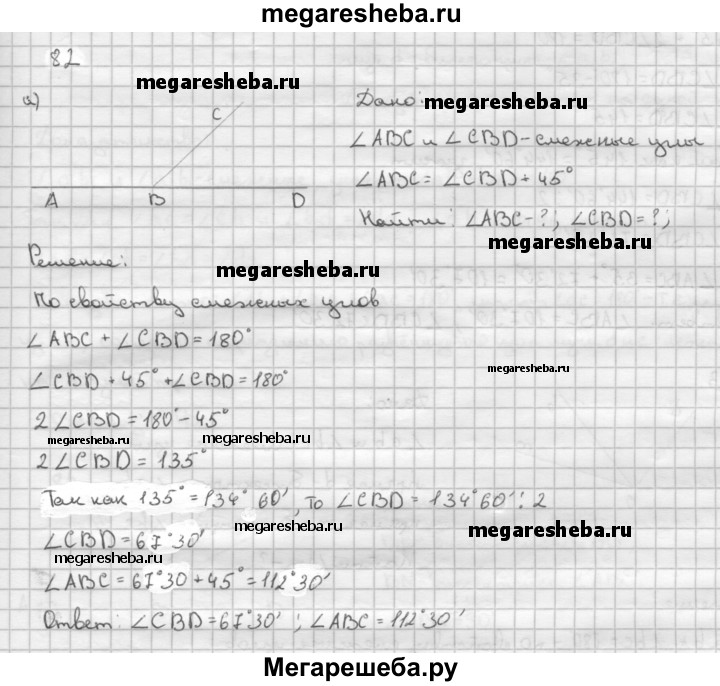 megaresheba.ru
82
megaresheba.ru
а)
C
A B D
Дано: megaresheba.ru
∠ABC и ∠CBD - смежные углы
∠ABC = ∠CBD + 45°
Найти: ∠ABC - ?; ∠CBD = ?;
megaresheba.ru
Решение:
megaresheba.ru
По свойству смежных углов
∠ABC + ∠CBD = 180°
∠CBD + 45° + ∠CBD = 180°
megaresheba.ru
2∠CBD = 180° - 45°
megaresheba.ru megaresheba.ru
2∠CBD = 135°
Так как 135° = 134° 60', то ∠CBD = 134° 60' : 2
megaresheba.ru megaresheba.ru
∠CBD = 67° 30'
megaresheba.ru
∠ABC = 67° 30 + 45° = 112° 30'
Ответ: ∠CBD = 67° 30' ; ∠ABC = 112° 30'
Мегарешеба.ру